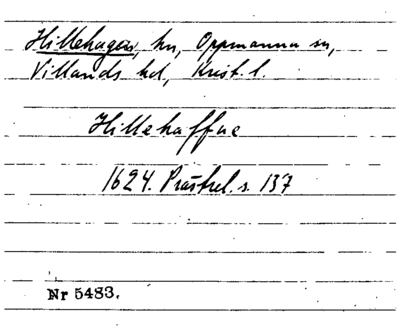 Hillehagen, hn, Oppmanna sn,
Villands hd, Krist. l.
Hillehaffue
1624. Prästrel. s. 137
Nr 5483.